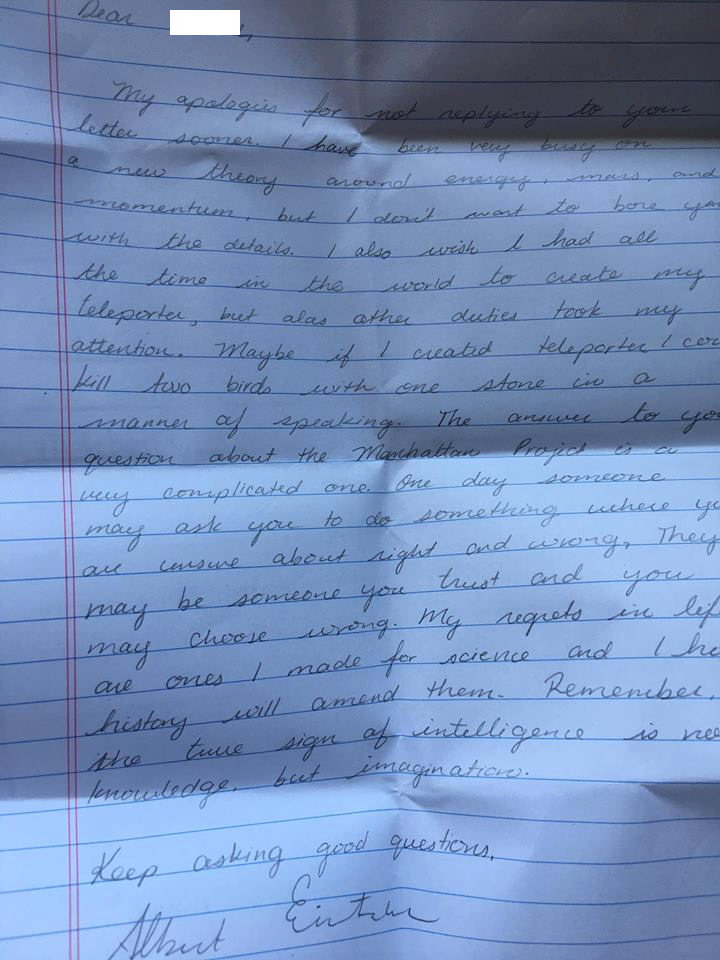 Dear ,
My apologies for not replying to your
letter sooner. I have been very busy on
a new theory around energy, mass, and
momentum, but I don't want to bore you
with the details. I also wish I had all
the time in the world to create my
teleporter, but alas other duties took my
attention. Maybe if I created teleporter I
kill two birds with one stone in a
manner of speaking. The answer to you
question about the Manhattan Project is a
very complicated one. One day someone
may ask you to do something where yo
are unsure about right and wrong. They
may be someone you trust and you
may choose wrong. My regrets in
are ones I made for science and I
history will amend them. Remember,
the true sign of intelligence is
knowledge, but imagination.
Keep asking good questions,
Albert Einstein